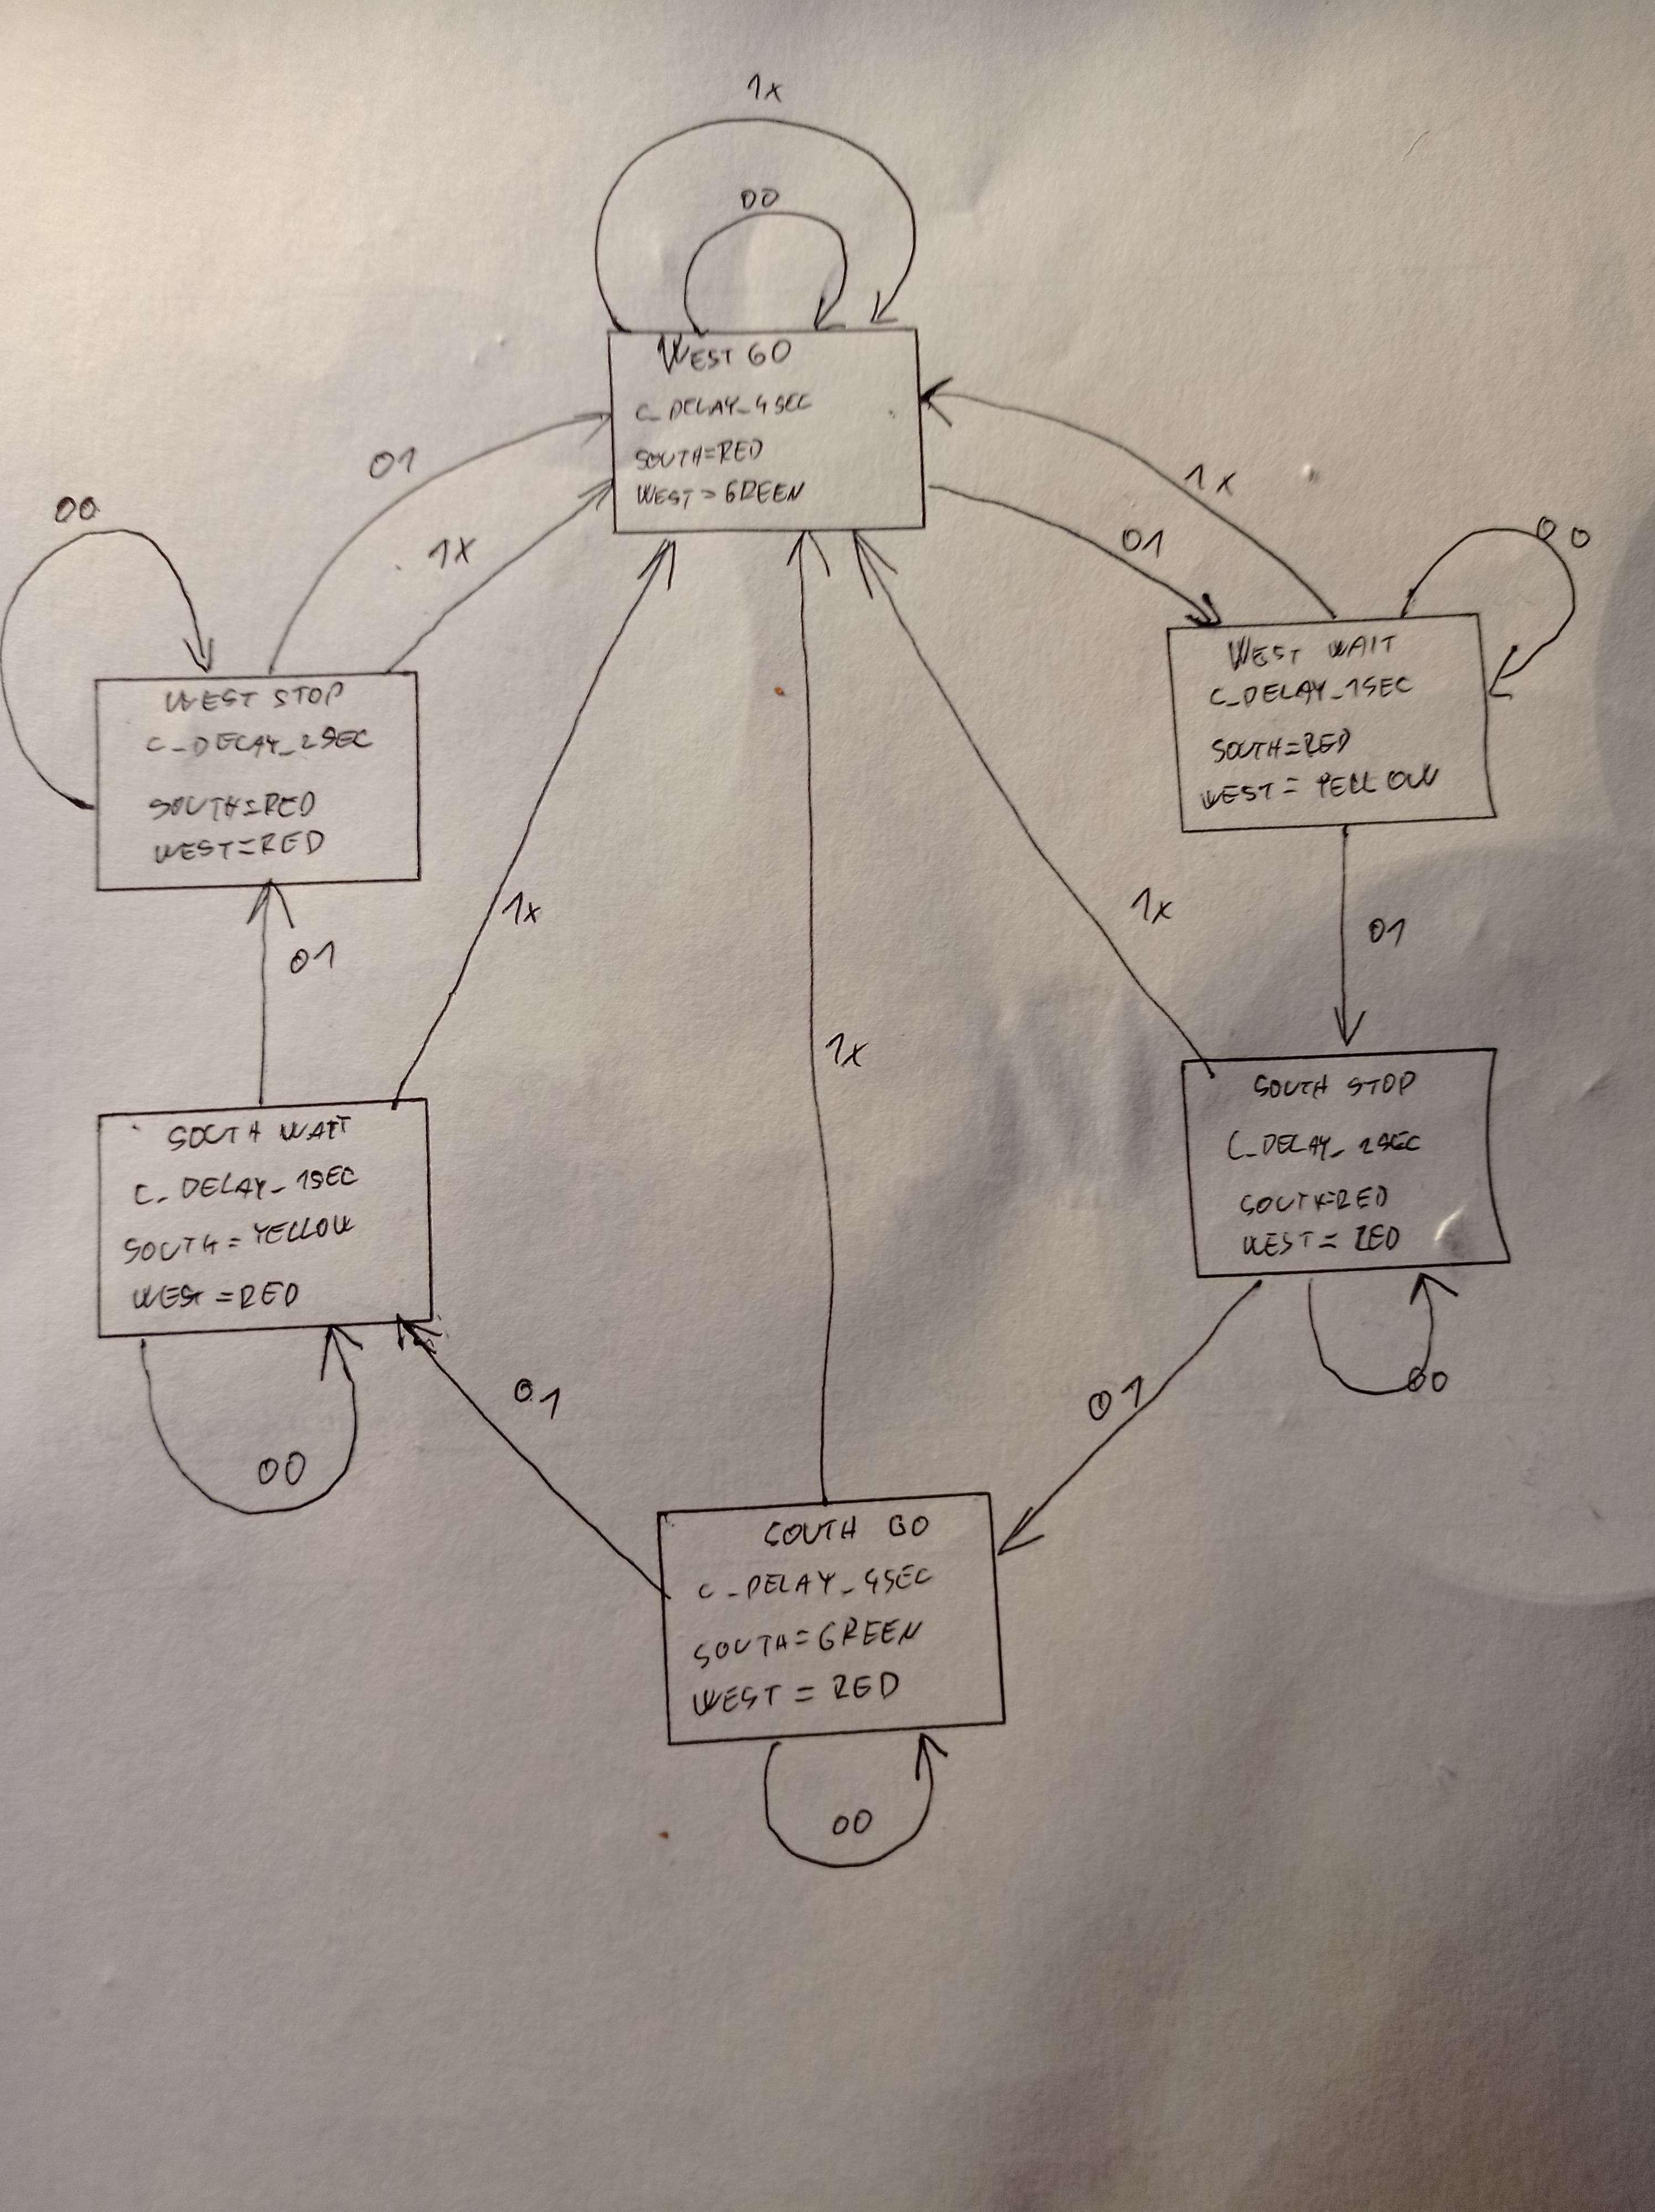 1x
00
WEST GO
C_DELAY_4SEC
SOUTH=RED
WEST=GREEN
01
1x
00
1x
01
00
WEST STOP
C_DELAY_2SEC
SOUTH=RED
WEST=RED
WEST WAIT
C_DELAY_1SEC
SOUTH=RED
WEST=YELLOW
01
1x
1x
01
1x
SOUTH WAIT
C_DELAY_1SEC
SOUTH=YELLOW
WEST=RED
SOUTH STOP
C_DELAY_2SEC
SOUTH=RED
WEST=RED
00
01
01
00
SOUTH GO
C_DELAY_4SEC
SOUTH=GREEN
WEST=RED
00